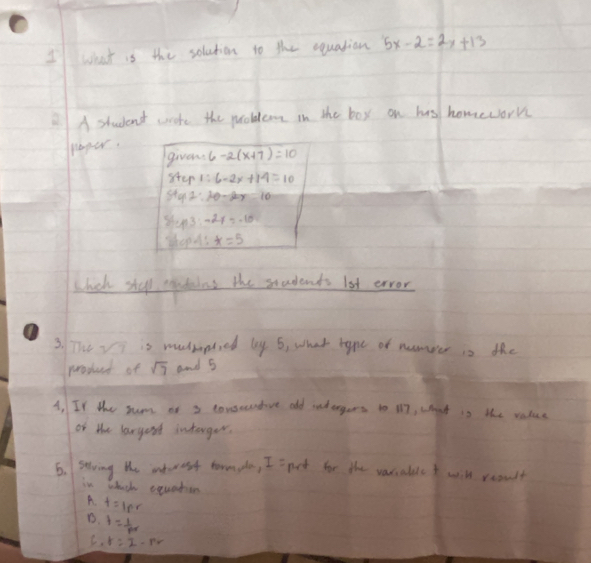 1 What is the solution to the equation 5x-2=2x+13
2 A student wrote the problem in the box on his homework
paper.
given: 6-2(x+7)=10
Step 1: 6-2x+14=10
Step 2: 20-2x=10
Step 3: -2x=-10
Step 4: x=5
Which step contains the students 1st error
3. The √7 is multiplied by 5, what type of number is the
product of √7 and 5
4. If the sum of 3 consecutive odd intergers is 117, what is the value
of the largest interger.
5. Solving the interest formula, I=prt for the variable t will result
in which equation
A. t=Ipr
B. t=I/pr
C. t=I-pr